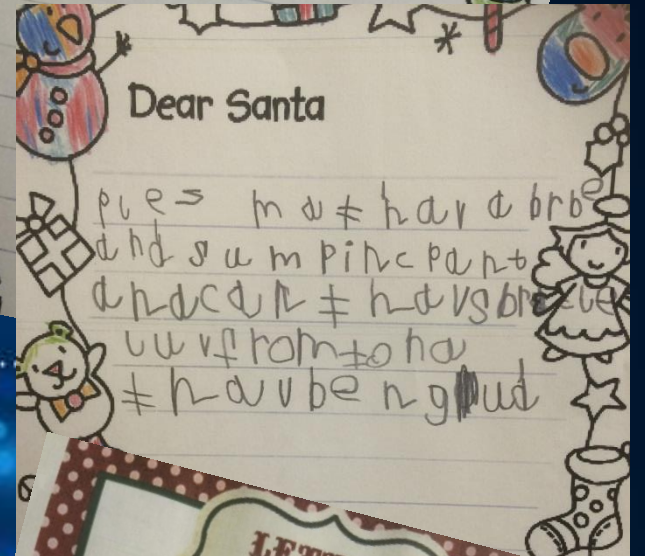 Dear Santa
ples ma I hav a brbe
and sum pinc pant
and can I hav sbr
luv from tona
I hav ben gud
LETT